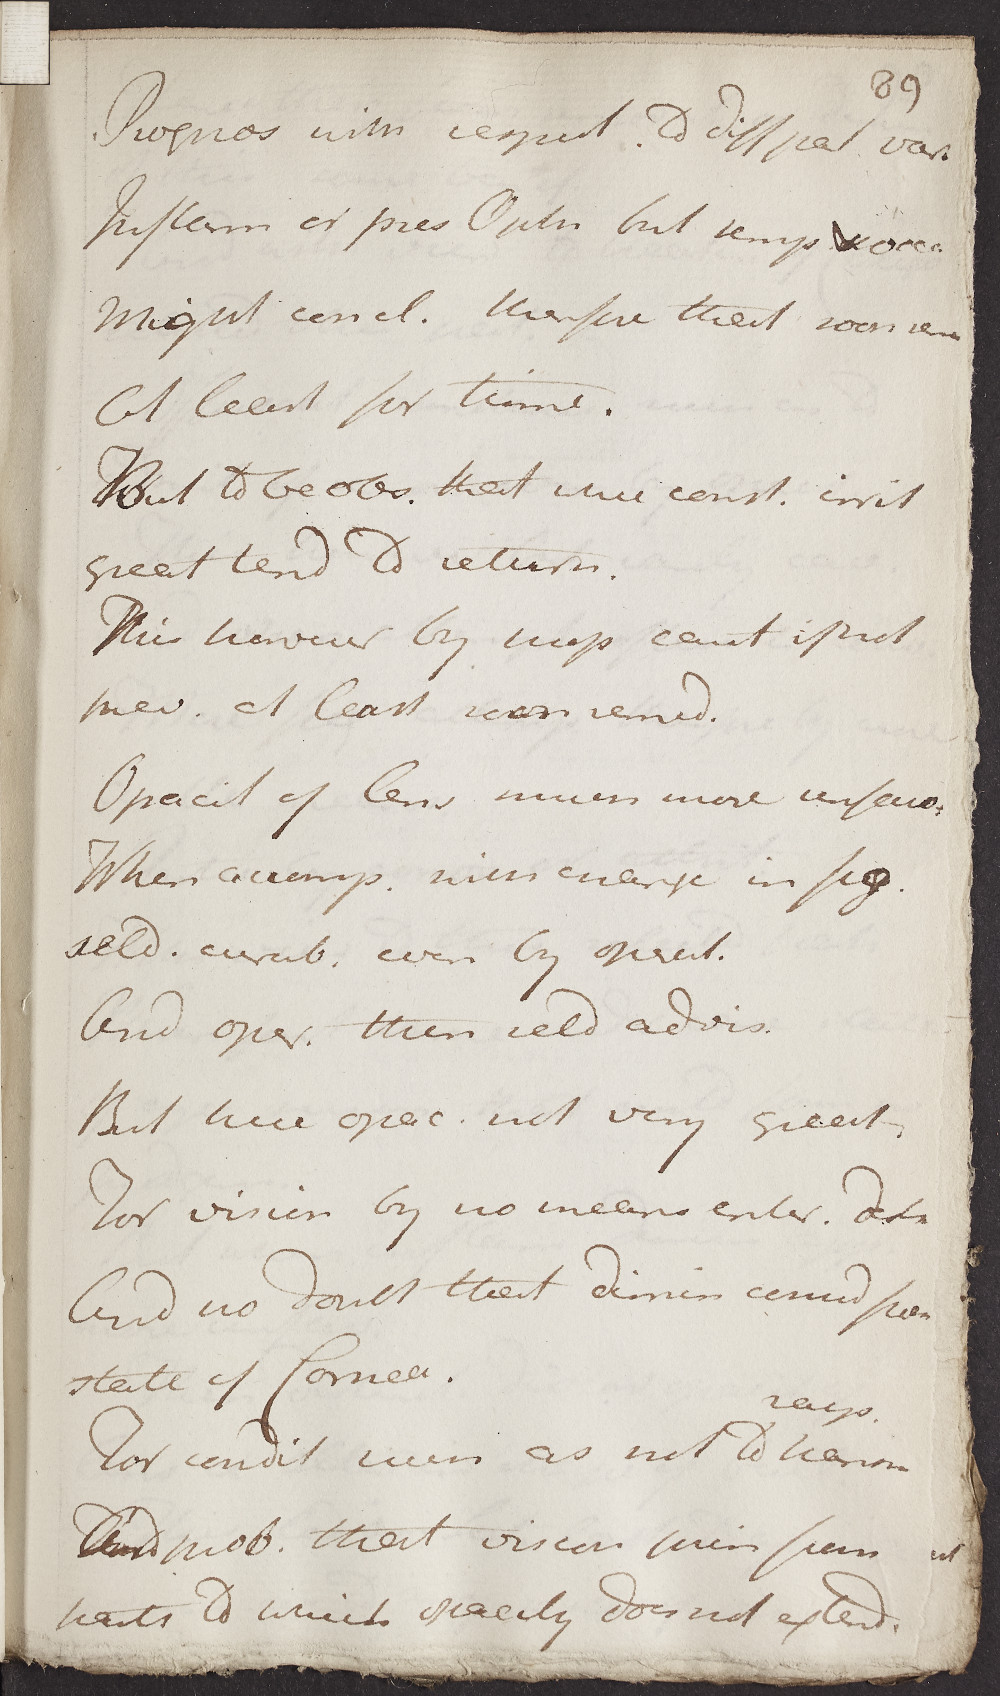 89
Prognos with respect. to diff par. var.
Inflam or pres Opth but symp
Might concl. therefore that soon rem
At least for time.
But to be obs. that such const. invit
great tend to return.
This however by means cant if not
prev. at least soon remed.
Opacit of lens much more unfavo.
When accomp. with change in fig.
seld. curab. even by operat.
And oper. then seld advis.
But here opac. not very great,
For vision by no means enter. dest
And no doubt that dimin consid from
state of Cornea.
rays.
For condit such as not to transm
And prob. that vision from at
parts to which opacity does not extend.